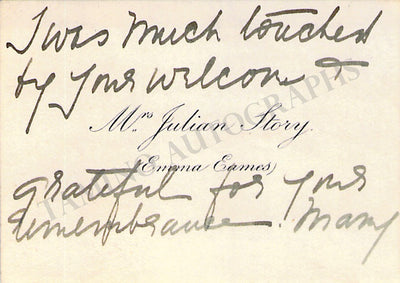 I was much touched
by your welcome &
Mrs Julian Story.
(Emma Eames)
grateful for your
remembrance. Many
TAMINO AUTOGRAPHS